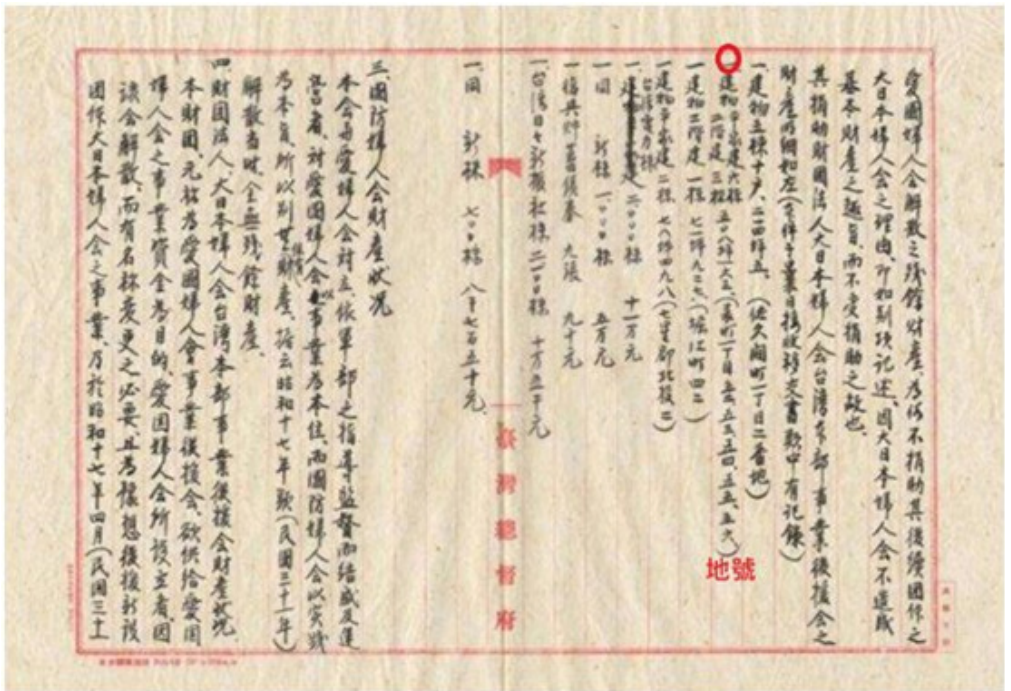 愛國婦人會解散之殘餘財產、為何不捐助其後續團体之
大日本婦人会之理由、即如別項記述、因大日本婦人会不造成
基本財產之趣旨、而不受捐助之故也、
其捐助財團法人大日本婦人会台灣本部事業後援会之
財產明細如左(本件予業日接收移交書類中有記錄)
一、建物五棟十戶、二二四坪五、(佐久間町一丁目二番地)
一、建物平家建六棟
二階建三棟
五〇八坪一六三(壽町一丁目五、五三、五四、五五、五六)
地號
一、建物二階建一棟 七二坪九二七、(堀江町四二)
一、建物平家建二棟 七八坪四九八(七星郡北投二)
台灣電力株 二、〇〇〇株 十一万元
一同 新株 一、〇〇〇株 五万元
一福興 九張 九十元
一、台灣日日新報社株 二一〇〇株 十万五千元
一、同 新株 七〇〇株 八千七百五十元、
三、國防婦人会財產狀况
本会与愛婦人会対立、依軍部之指導監督而結成及運
營者、対愛國婦人会以事業為本位、而國防婦人会以实践
為本旨、所以別無財產、據云昭和十七年頭(民國三十一年)
解散当时、全無殘餘財產、
四、財団法人、大日本婦人会台灣本部事業後援会財產狀况
本財團、元称為愛國婦人會事業後援会、欲供給愛國
婦人会之事業資金為目的、愛國婦人会所設立者、因
該会解散、而有名称変更之必要、且為懷想後援新設
團体大日本婦人会之事業、乃於昭和十七年四月(民國三十一
臺灣總督府